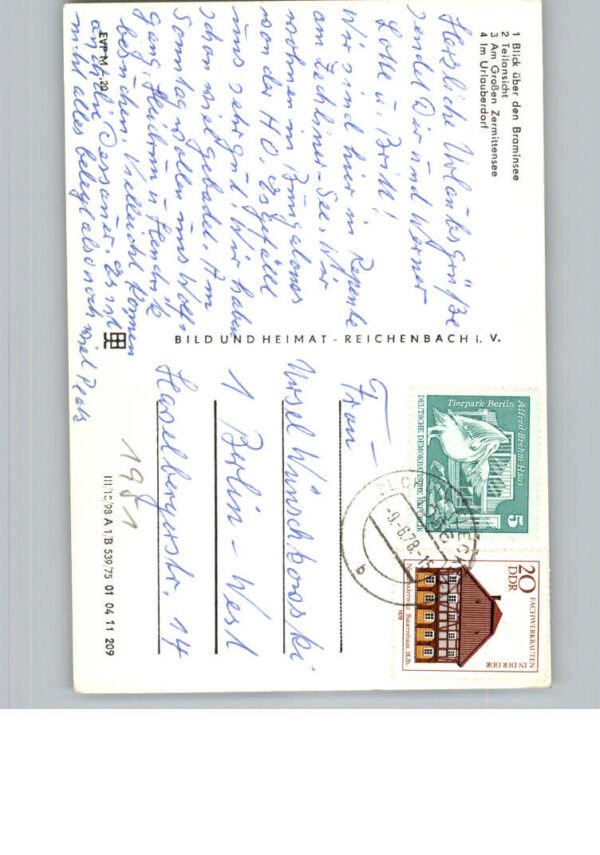 1 Blick über den Braminsee
2 Teilansicht
3 Am Großen Zermittensee
4 Im Urlauberdorf
Herzliche Urlaubsgrüße
sendet Dir und Werner
Lotte u. Britt!
Wir sind hier in Repente
am Zechliner-See. Wir
wohnen im Bungalow
von der HO. Es gefällt
uns sehr gut! Wir haben
schon viel gebadet. Am
Sonntag wollen uns Wolf-
gang, u.
besuchen. Vielleicht kommen
auch die Dessauer. Es ist
nicht alles belegt also noch viel Platz
EVP M -,20
BILD UND HEIMAT - REICHENBACH i. V.
III/18/98 A 1/B 539/75 01 04 11 209
1981
Frau
Ursel Wünschkowski
1 Berlin-West
Haselbergerstr. 14
Alfred Brehm Haus
Tierpark Berlin
DEUTSCHE DEMOKRATISCHE REPUBLIK
5
20
DDR
FACHWERKBAUTEN
IN DER DDR
Bauernhaus, 18. Jh.
1978
-9.-6.78.-15
b